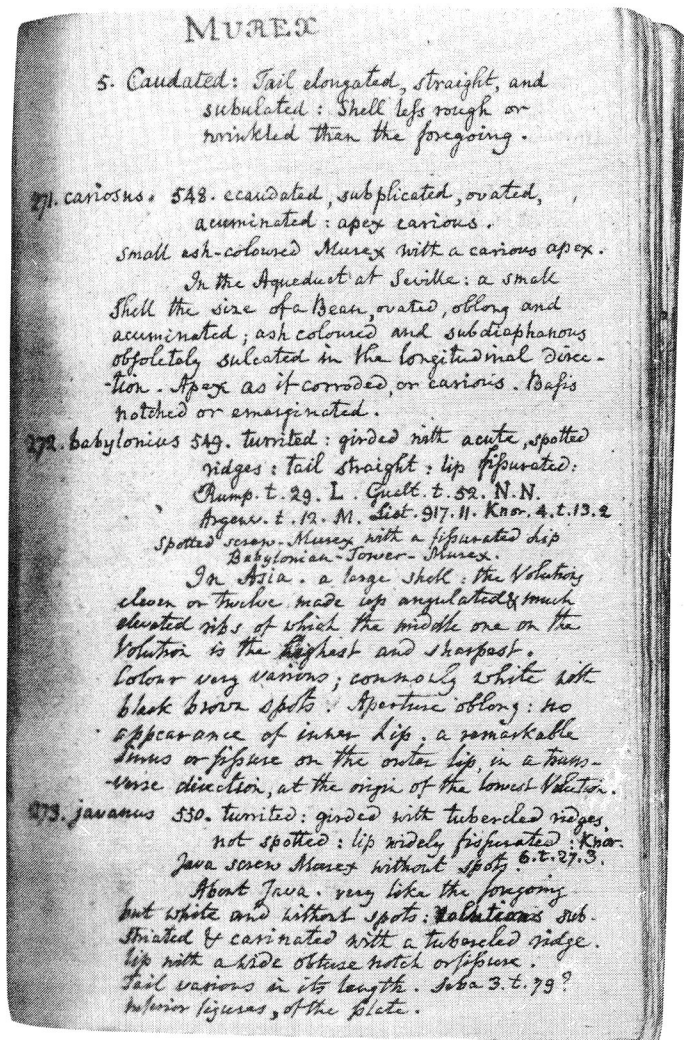 MUREX
5. Caudated: Tail elongated, straight, and
subulated: Shell less rough or
wrinkled than the foregoing.
271. cariosus. 548. ecaudated, subplicated, ovated,
acuminated: apex carious.
small ash-coloured Murex with a carious apex.
In the Aqueduct at Seville: a small
Shell the size of a Bean, ovated, oblong and
acuminated; ash coloured and subdiaphanous
obsoletely sulcated in the longitudinal direc-
-tion. Apex as if corroded, or carious. Basis
notched or emarginated.
272. babylonius 549. turrited: girded with acute, spotted
ridges: tail straight: lip fissurated:
Rump. t. 29. L. Gualt. t. 52. N. N.
Argenv. t. 12. M. List. 917. 11. Knor. 4. t. 13. 2
spotted screw-Murex with a fissurated Lip
Babylonian-Tower-Murex.
In Asia. a large shell: the Volutions
eleven or twelve made up angulated & much
elevated ribs of which the middle one on the
Volution is the highest and sharpest.
Colour very various; commonly white with
black brown spots. Aperture oblong: no
appearance of inner Lip. a remarkable
Sinus or fissure on the outer lip, in a trans-
-verse direction, at the origin of the lowest Volution.
273. javanus 550. turrited: girded with tubercled ridges,
not spotted: lip widely fissurated: Knor.
6. t. 27. 3.
Java screw Murex without spots.
About Java. very like the foregoing
but white and without spots: volutions sub-
striated & carinated with a tubercled ridge.
Lip with a wide obtuse notch or fissure.
Tail various in its length. Seba 3. t. 79?
inferior figures, of the plate.